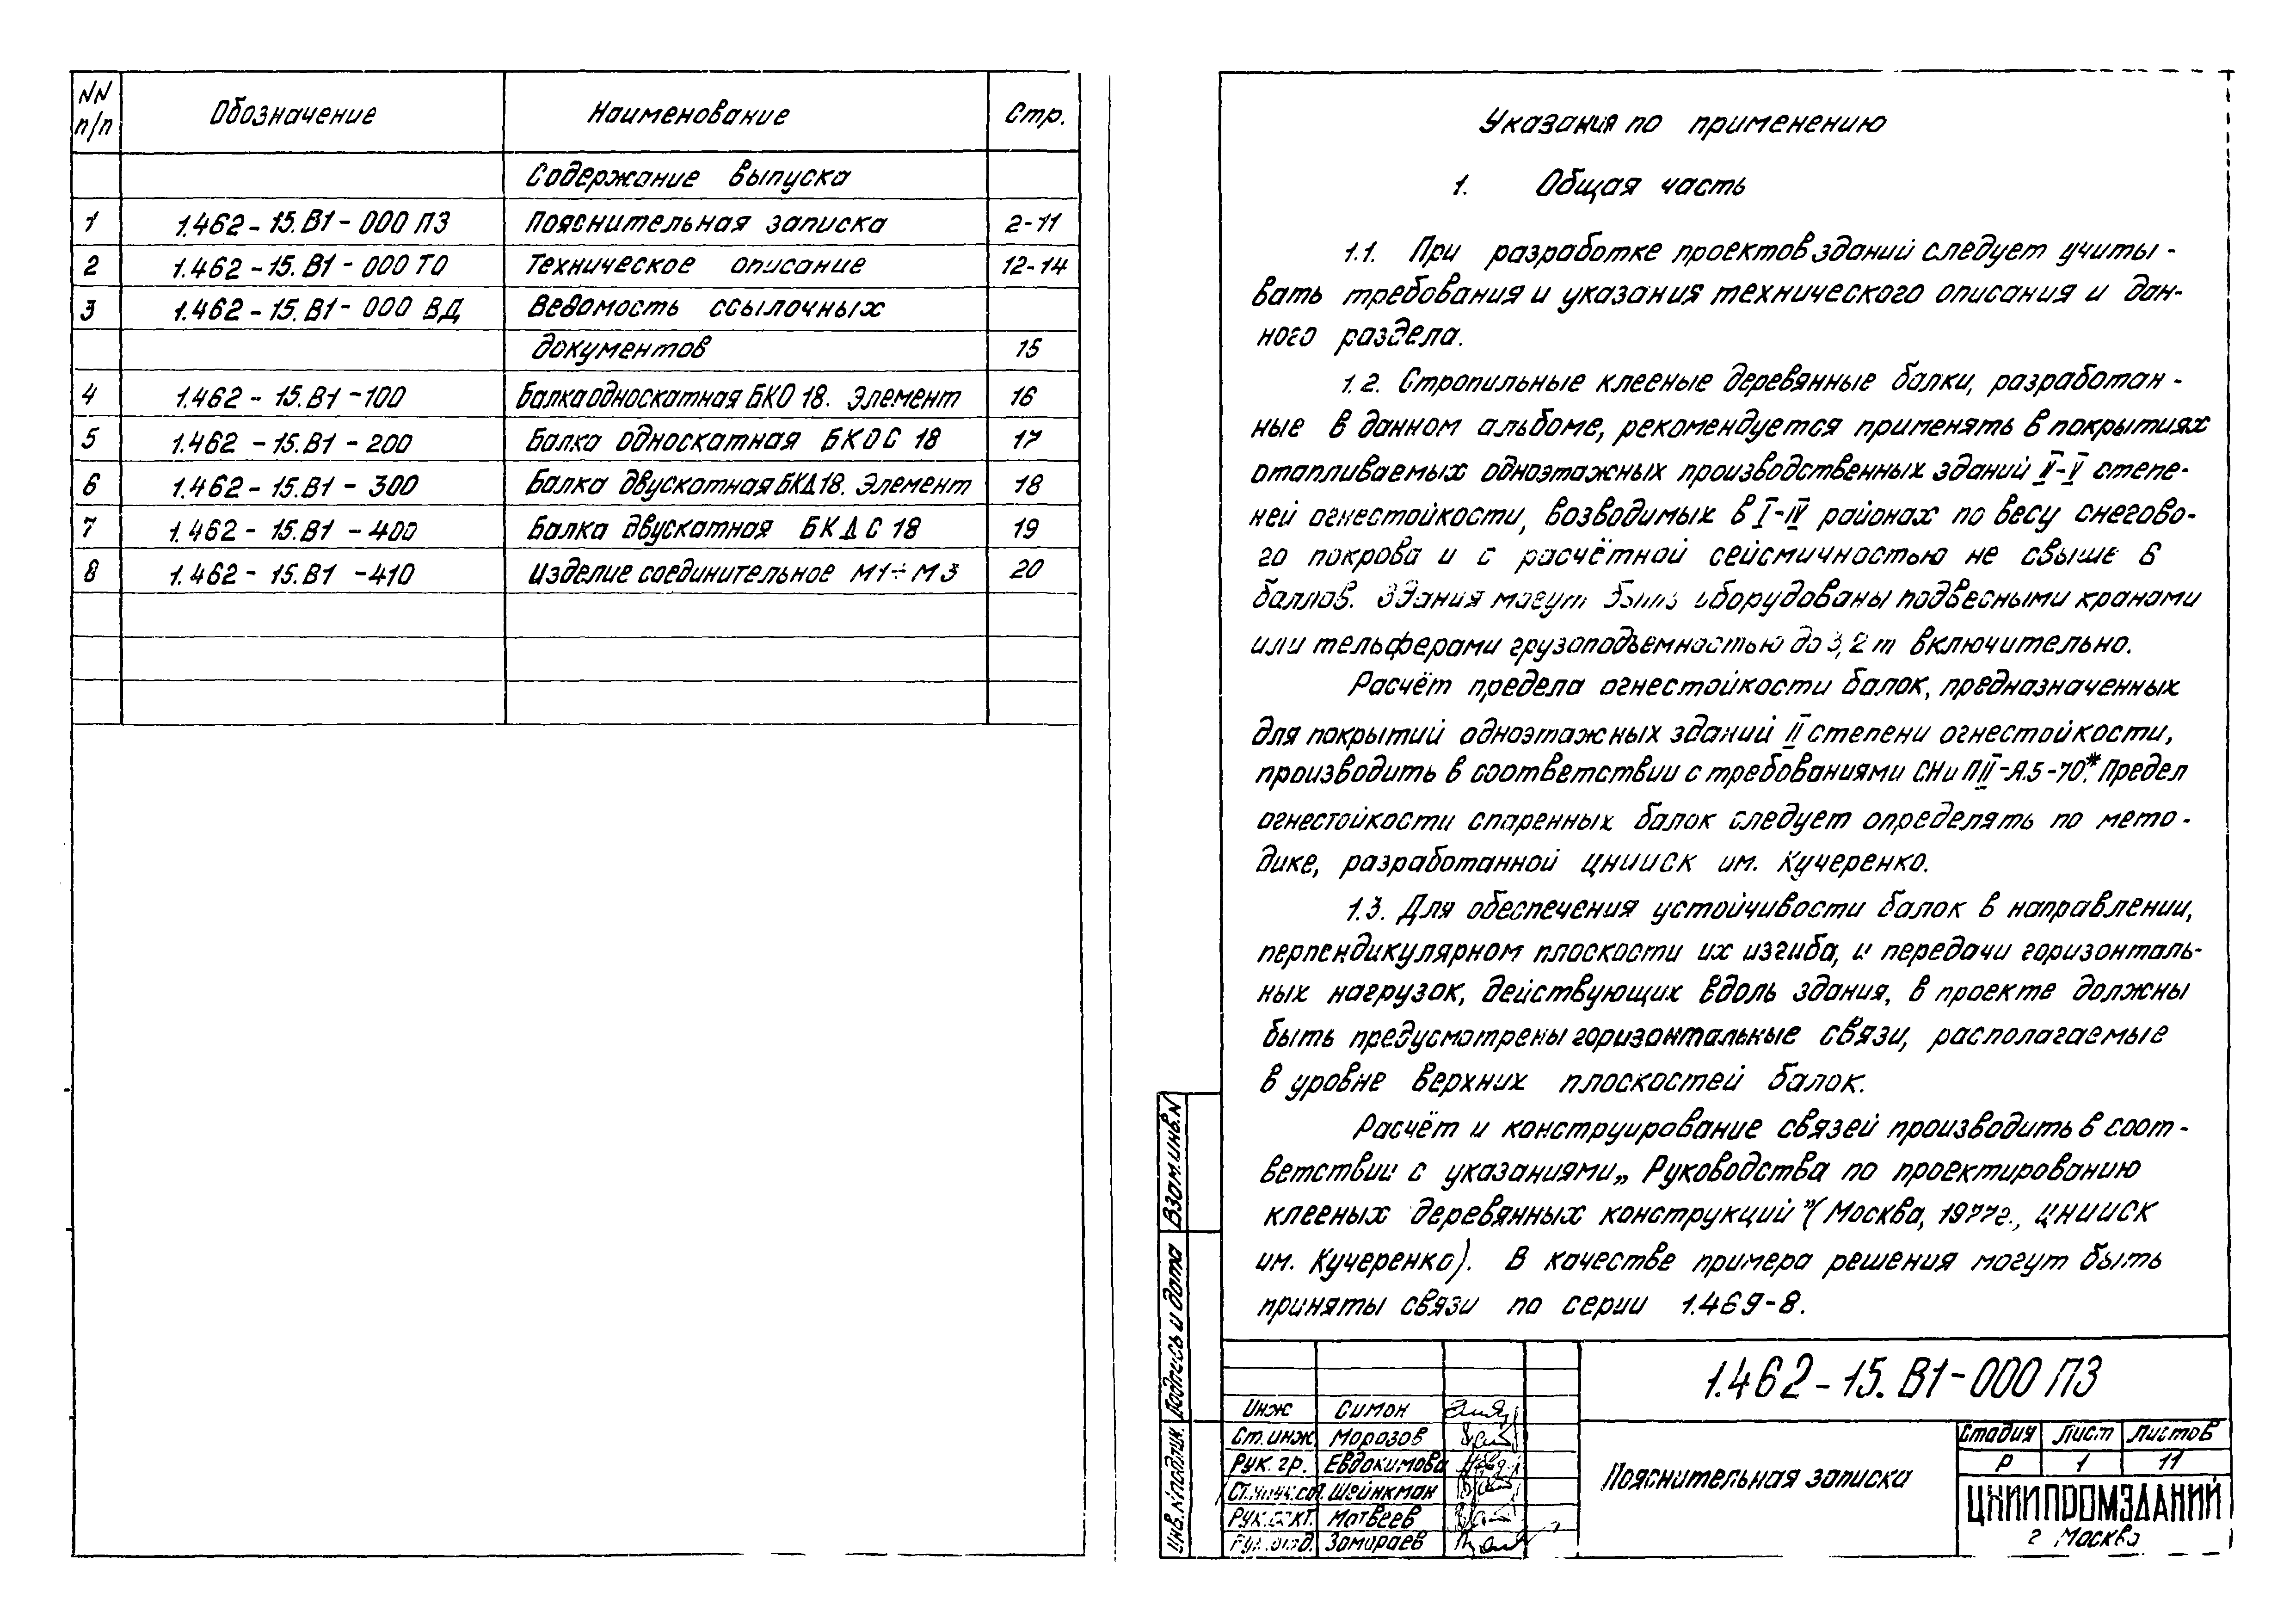 NN п/п Обозначение Наименование Стр.
Содержание выпуска
1 1.462-15.В1-000 ПЗ Пояснительная записка 2-11
2 1.462-15.В1-000 ТО Техническое описание 12-14
3 1.462-15.В1-000 ВД Ведомость ссылочных
документов 15
4 1.462-15.В1-100 Балка односкатная БКО 18. Элемент 16
5 1.462-15.В1-200 Балка односкатная БКОС 18 17
6 1.462-15.В1-300 Балка двускатная БКД 18. Элемент 18
7 1.462-15.В1-400 Балка двускатная БКДС 18 19
8 1.462-15.В1-410 Изделие соединительное М1÷М3 20
Указания по применению
1. Общая часть
1.1. При разработке проектов зданий следует учиты-
вать требования и указания технического описания и дан-
ного раздела.
1.2. Стропильные клееные деревянные балки, разработан-
ные в данном альбоме, рекомендуется применять в покрытиях
отапливаемых одноэтажных производственных зданий II-V степе-
ней огнестойкости, возводимых в I-IV районах по весу снегово-
го покрова и с расчётной сейсмичностью не свыше 6
баллов. Здания могут быть оборудованы подвесными кранами
или тельферами грузоподъемностью до 3,2 т включительно.
Расчёт предела огнестойкости балок, предназначенных
для покрытий одноэтажных зданий II степени огнестойкости,
производить в соответствии с требованиями СНиП II-А.5-70*. Предел
огнестойкости спаренных балок следует определять по мето-
дике, разработанной ЦНИИСК им. Кучеренко.
1.3. Для обеспечения устойчивости балок в направлении,
перпендикулярном плоскости их изгиба, и передачи горизонталь-
ных нагрузок, действующих вдоль здания, в проекте должны
быть предусмотрены горизонтальные связи, располагаемые
в уровне верхних плоскостей балок.
Расчёт и конструирование связей производить в соот-
ветствии с указаниями „Руководства по проектированию
клееных деревянных конструкций" (Москва, 1977г., ЦНИИСК
им. Кучеренко). В качестве примера решения могут быть
приняты связи по серии 1.469-8.
Взам.инв.N
Подпись и дата
Инв.N подлик.
1.462-15.В1-000 ПЗ
Инж Симон
Ст.инж Морозов
Рук. гр. Евдокимова
Шейнкман
Матвеев
Замараев
Пояснительная записка
Стадия Лист Листов
Р 1 11
ЦНИИПРОМЗДАНИЙ
г Москва